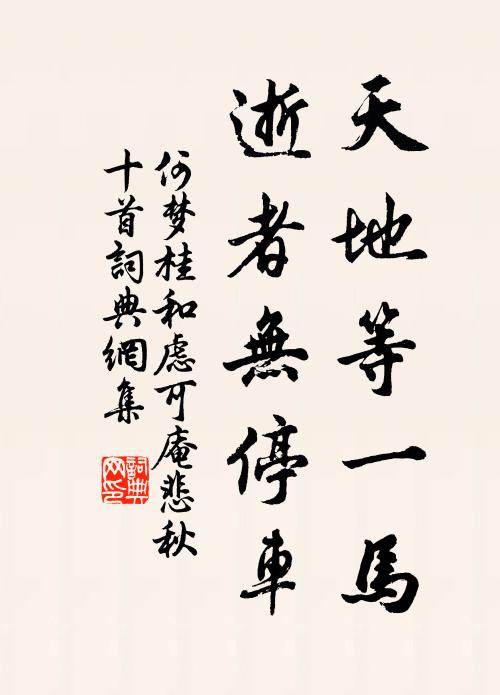 天地等一馬
逝者無停車
何梦桂和虑可庵悲秋
十首詞典網集
詞典网印